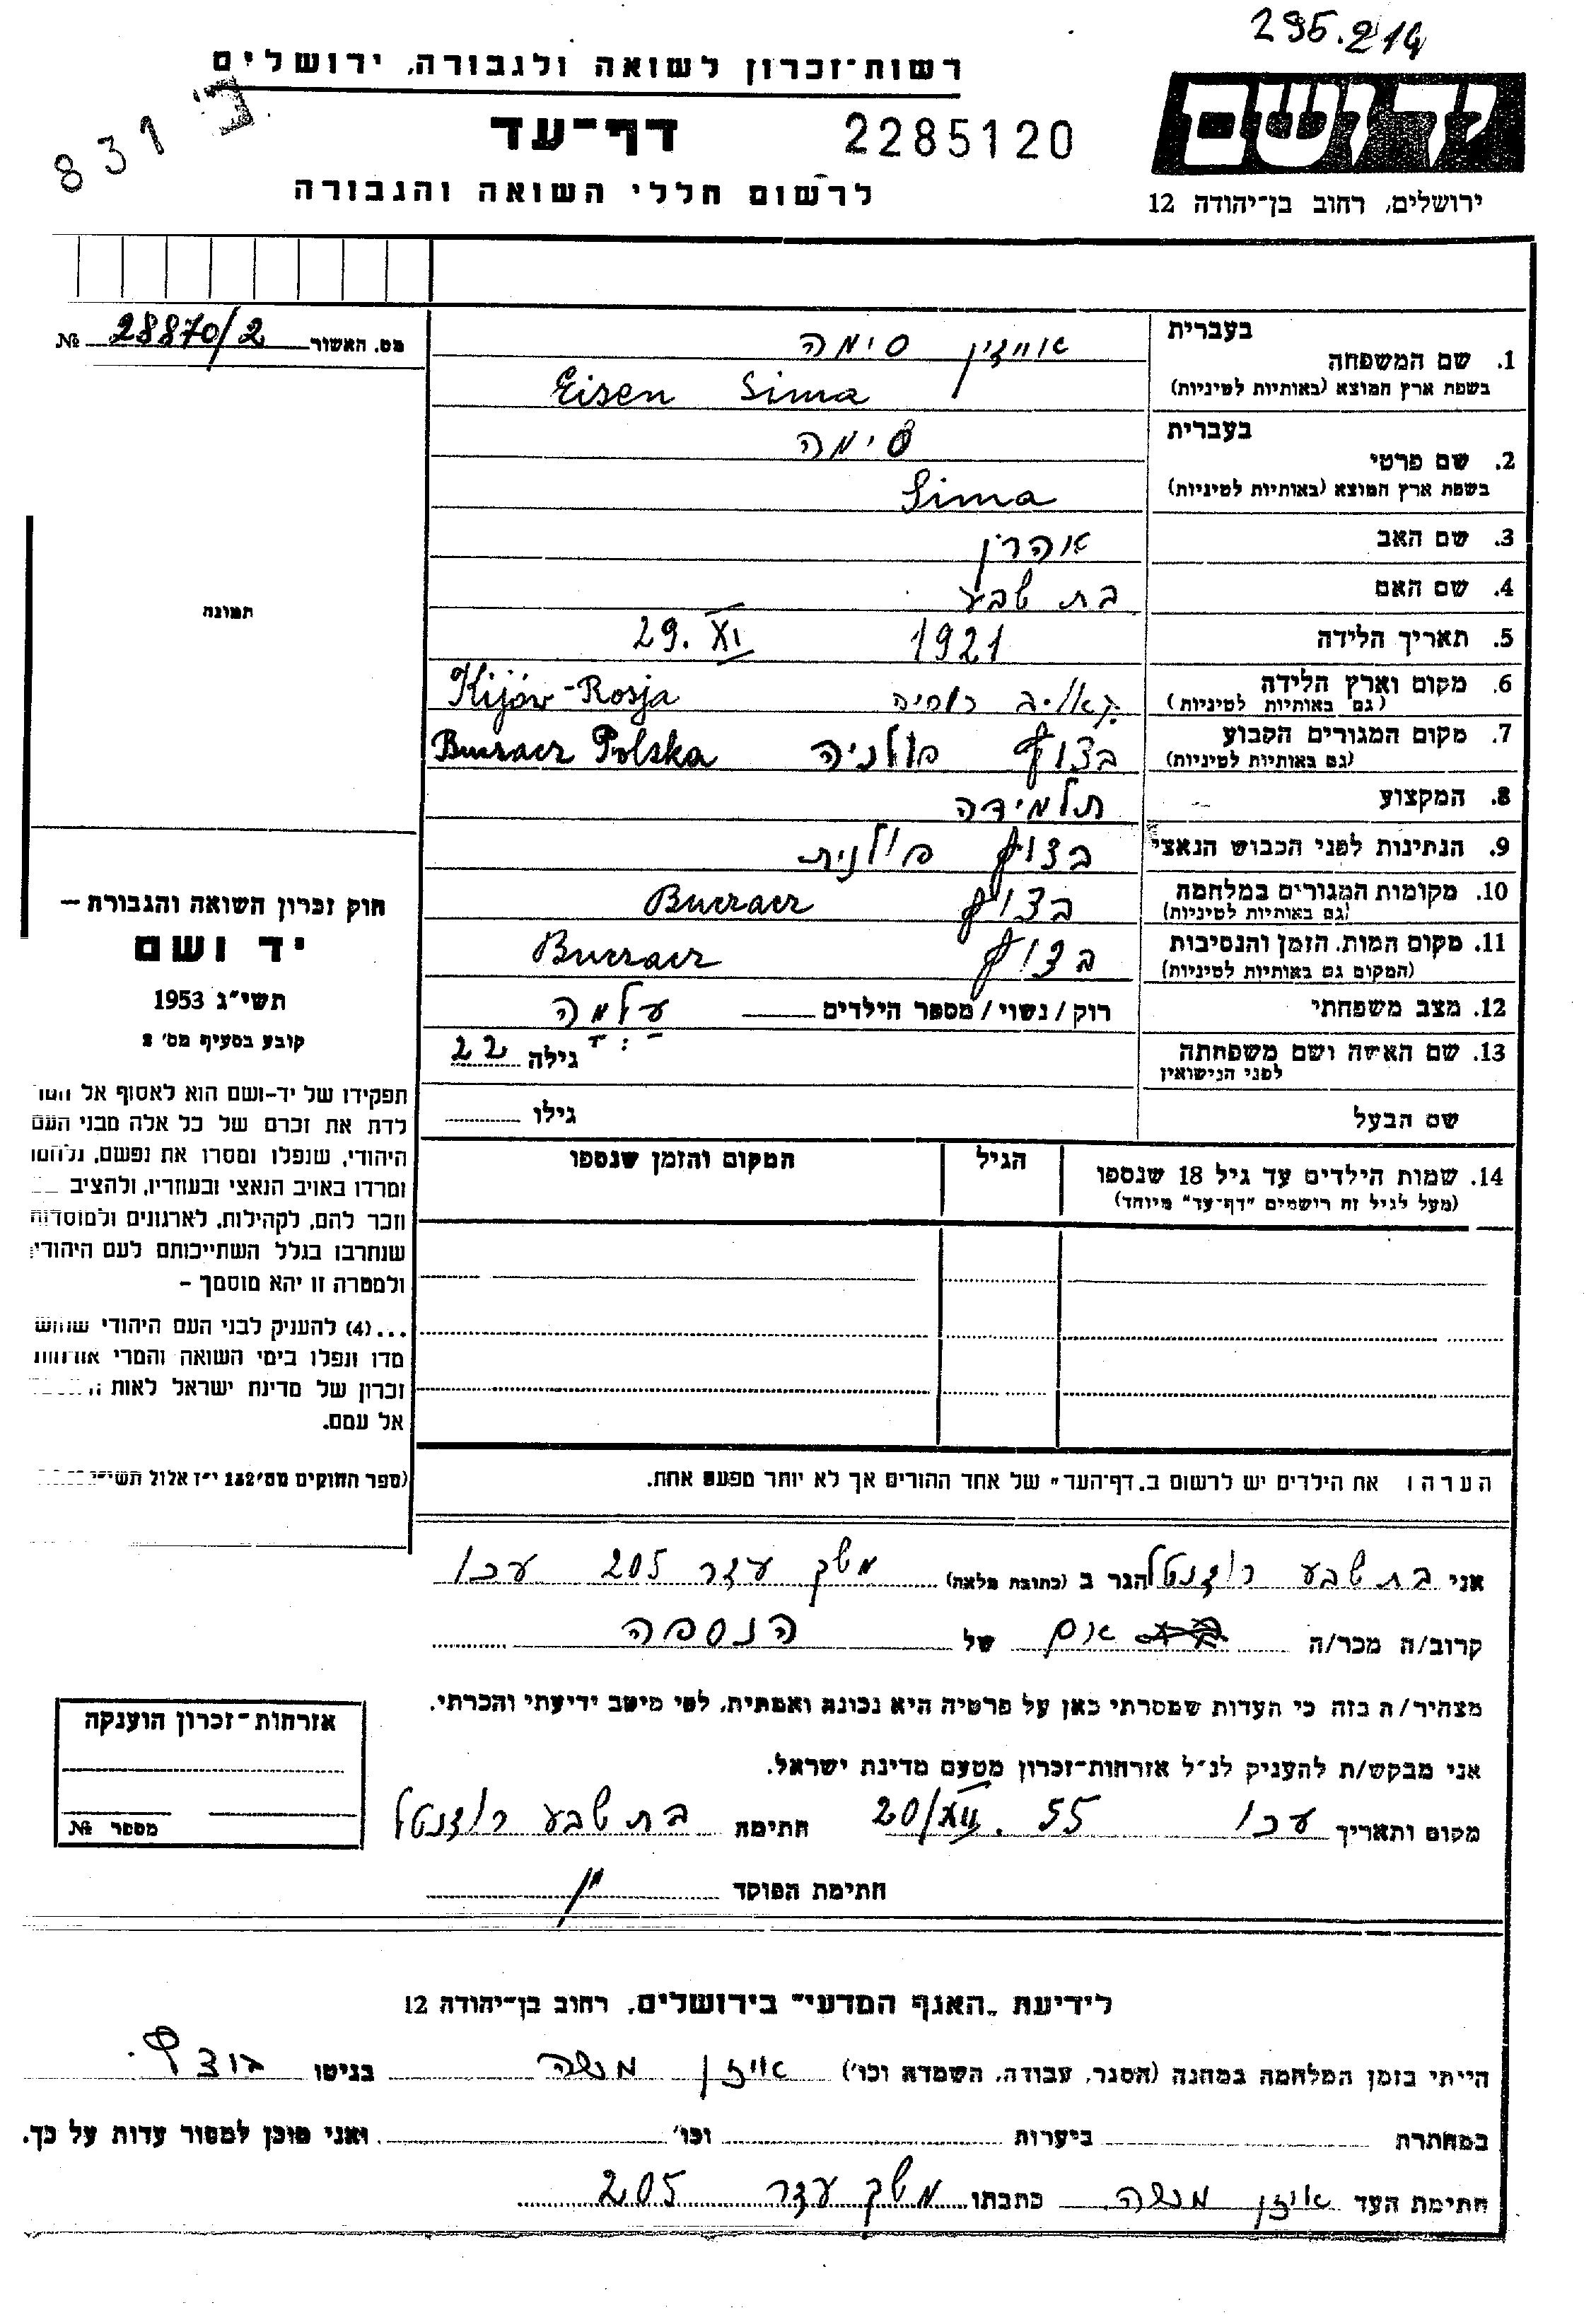 295.214
רשות-זכרון לשואה ולגבורה, ירושלים
831
דף-עד
2285120
יד ושם
לרשום חללי השואה והגבורה
ירושלים, רחוב בן-יהודה 12
מס. האשור 28870/2 №
בעברית
1. שם המשפחה סימה
בשפת ארץ המוצא (באותיות לטיניות) Eisen Sima
בעברית
2. שם פרטי סימה
בשפת ארץ המוצא (באותיות לטיניות) Sima
3. שם האב אהרן
4. שם האם בת שבע
תמונה
5. תאריך הלידה 1921 29. XI
6. מקום וארץ הלידה רוסיה Kijów-Rosja
(גם באותיות לטיניות)
7. מקום המגורים הקבוע פולניה Buczacz Polska
(גם באותיות לטיניות)
8. המקצוע תלמידה
9. הנתינות לפני הכבוש הנאצי פולנית
10. מקומות המגורים במלחמה Buczacz
(גם באותיות לטיניות)
11. מקום המות, הזמן והנסיבות Buczacz
(המקום גם באותיות לטיניות)
12. מצב משפחתי רוק / נשוי / מספר הילדים עלמה
13. שם האשה ושם משפחתה גילה 22
לפני הנישואין
שם הבעל גילו
14. שמות הילדים עד גיל 18 שנספו הגיל המקום והזמן שנספו
(מעל לגיל זה רושמים "דף-עד" מיוחד)
חוק זכרון השואה והגבורה –
יד ושם
תשי"ג 1953
קובע בסעיף מס' 2
תפקידו של יד-ושם הוא לאסוף אל
לדת את זכרם של כל אלה מבני העם
היהודי, שנפלו ומסרו את נפשם, נלחמו
ומרדו באויב הנאצי ובעוזריו, ולהציב
וזכר להם, לקהילות, לארגונים ולמוסדות
שנחרבו בגלל השתייכותם לעם היהודי
ולמטרה זו יהא מוסמך –
...(4) להעניק לבני העם היהודי
מדו ונפלו בימי השואה והמרי
זכרון של מדינת ישראל לאות
אל עמם.
(ספר החוקים מס' 132 י"ז אלול
הערה: את הילדים יש לרשום ב„דף-העד" של אחד ההורים אך לא יותר מפעם אחת.
אני בת שבע רוזנטל הגר ב (כתובת מלאה) משק עזר 205 עכו
קרוב/ה מכר/ה אם של הנספה
מצהיר/ה בזה כי העדות שמסרתי כאן על פרטיה היא נכונה ואמתית, לפי מיטב ידיעתי והכרתי.
אני מבקש/ת להעניק לנ"ל אזרחות-זכרון מטעם מדינת ישראל.
מקום ותאריך עכו 20/XII. 55 חתימה בת שבע רוזנטל
חתימת הפוקד
אזרחות-זכרון הוענקה
מספר №
לידיעת „האגף המדעי" בירושלים, רחוב בן-יהודה 12
הייתי בזמן המלחמה במחנה (הסגר, עבודה, השמדה וכו') אייזן משה בגיטו
במחתרת ביערות וכו' ואני מוכן למסור עדות על כך.
חתימת העד אייזן משה כתבתו משק עזר 205